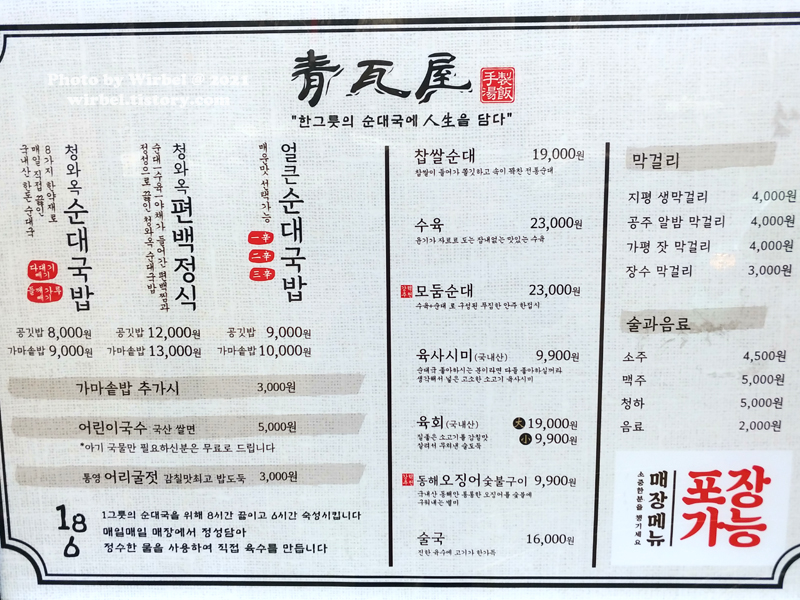 Photo by Wirbel @ 2021
wirbel.tistory.co
青瓦屋
手製
湯飯
"한그릇의 순대국에 人生을 담다"
8가지 한약재로
매일 직접 끓인
국내산 한돈 순대국
청와옥 순대국밥
다대기
빼기
들깨가루
빼기
공깃밥 8,000원
가마솥밥 9,000원
청와옥 편백정식
순대+수육+야채가 들어간 편백찜과
정성으로 끓인 청와옥 순대국밥
공깃밥 12,000원
가마솥밥 13,000원
얼큰순대국밥
매운맛 선택가능
一辛
二辛
三辛
공깃밥 9,000원
가마솥밥 10,000원
가마솥밥 추가시 3,000원
어린이국수 국산 쌀면 5,000원
*아기 국물만 필요하신분은 무료로 드립니다
통영 어리굴젓 감칠맛최고 밥도둑 3,000원
186
1그릇의 순대국을 위해 8시간 끓이고 6시간 숙성시킵니다
매일매일 매장에서 정성담아
정수한 물을 사용하여 직접 육수를 만듭니다
찹쌀순대 19,000원
찹쌀이 들어가 쫄깃하고 속이 꽉찬 전통순대
수육 23,000원
윤기가 자르르 도는 잡내없는 맛있는 수육
모둠순대 23,000원
수육+순대 로 구성된 푸짐한 안주 한접시
육사시미(국내산) 9,900원
순대국 좋아하시는 분이라면 다들 좋아하실꺼라
생각해서 넣은 고소한 소고기 육사시미
육회(국내산) 大 19,000원
小 9,900원
질좋은 소고기를 감칠맛
살려서 무쳐낸 술도둑
동해오징어숯불구이 9,900원
국내산 동해안 통통한 오징어를 숯불에
구워내는 별미
술국 16,000원
진한 육수에 고기가 한가득
막걸리
지평 생막걸리 4,000원
공주 알밤 막걸리 4,000원
가평 잣 막걸리 4,000원
장수 막걸리 3,000원
술과음료
소주 4,500원
맥주 5,000원
청하 5,000원
음료 2,000원
소중한분을 챙기세요
매장메뉴
포장
가능